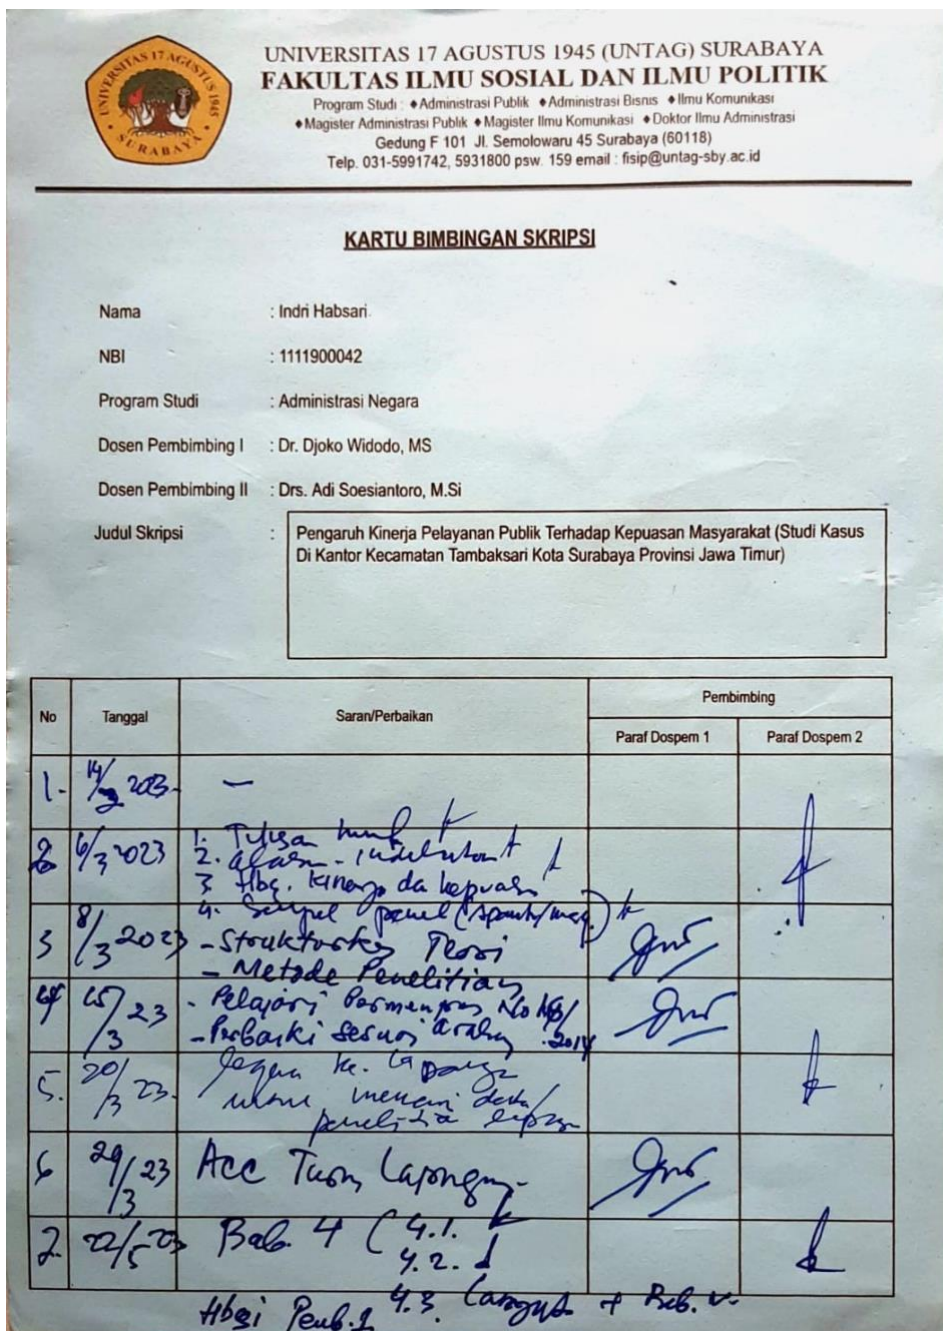 UNIVERSITAS 17 AGUSTUS 1945
SURABAYA
UNIVERSITAS 17 AGUSTUS 1945 (UNTAG) SURABAYA
FAKULTAS ILMU SOSIAL DAN ILMU POLITIK
Program Studi : ♦Administrasi Publik ♦Administrasi Bisnis ♦Ilmu Komunikasi
♦Magister Administrasi Publik ♦Magister Ilmu Komunikasi ♦Doktor Ilmu Administrasi
Gedung F 101 Jl. Semolowaru 45 Surabaya (60118)
Telp. 031-5991742, 5931800 psw. 159 email : fisip@untag-sby.ac.id
KARTU BIMBINGAN SKRIPSI
Nama : Indri Habsari
NBI : 1111900042
Program Studi : Administrasi Negara
Dosen Pembimbing I : Dr. Djoko Widodo, MS
Dosen Pembimbing II : Drs. Adi Soesiantoro, M.Si
Judul Skripsi : Pengaruh Kinerja Pelayanan Publik Terhadap Kepuasan Masyarakat (Studi Kasus
Di Kantor Kecamatan Tambaksari Kota Surabaya Provinsi Jawa Timur)
No Tanggal Saran/Perbaikan Pembimbing
Paraf Dospem 1 Paraf Dospem 2
1. 2023 -
6/3 2023 1.
2.
3. Hbg. kinerja da kepuasa
4.
3 8/3 2023 - Struktur Teori
- Metode Penelitian
15/3 23 - Pelajari No
- Perbaiki sesuai 2014
5. 20/3 23. ke
mencari data
6 29/3 23 Acc Turun Lapangan
22/5 23 Bab. 4 ( 4.1.
4.2.
4.3. + Bab. V.